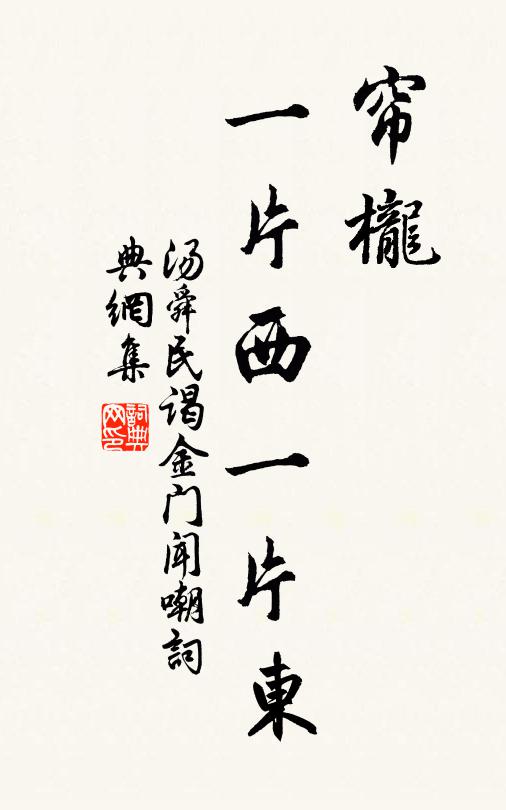 帘櫳
一片西一片東
汤舜民谒金门闻嘲詞
典網集
詞典网印